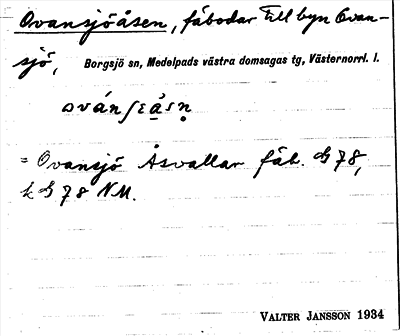 Ovansjöåsen, fäbodar till byn Ovan-
sjö, Borgsjö sn, Medelpads västra domsagas tg, Västernorrl. l.
= Ovansjö Åsvallar fäb. G 78,
k G 78 NM.
VALTER JANSSON 1934